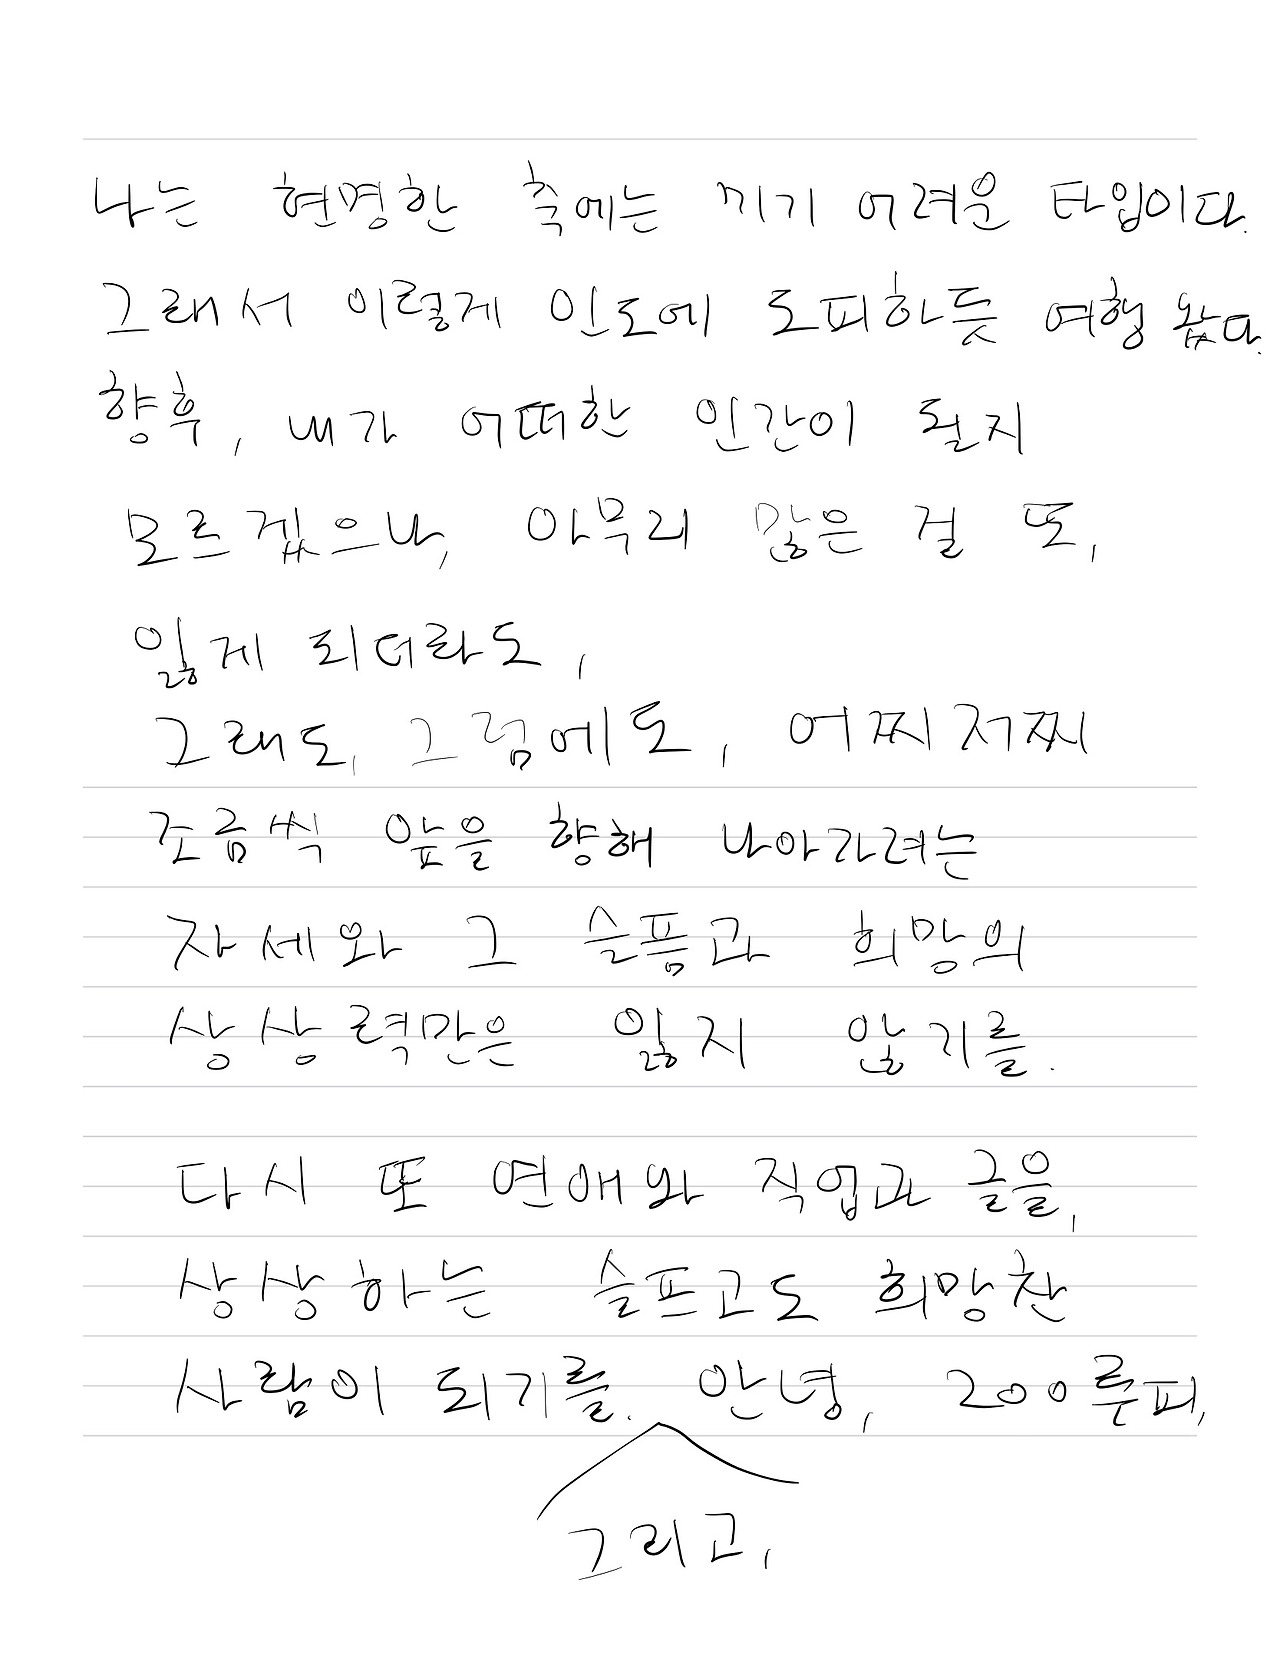 나는 현명한 축에는 끼기 어려운 타입이다.
그래서 이렇게 인도에 도피하듯 여행 왔다.
향후, 내가 어떠한 인간이 될지
모르겠으나, 아무리 많은 걸 또,
잃게 되더라도,
그래도, 그럼에도, 어찌저찌
조금씩 앞을 향해 나아가려는
자세와 그 슬픔과 희망의
상상력만은 잃지 않기를.
다시 또 연애와 직업과 글을,
상상하는 슬프고도 희망찬
사람이 되기를. 안녕, 200루피,
그리고,